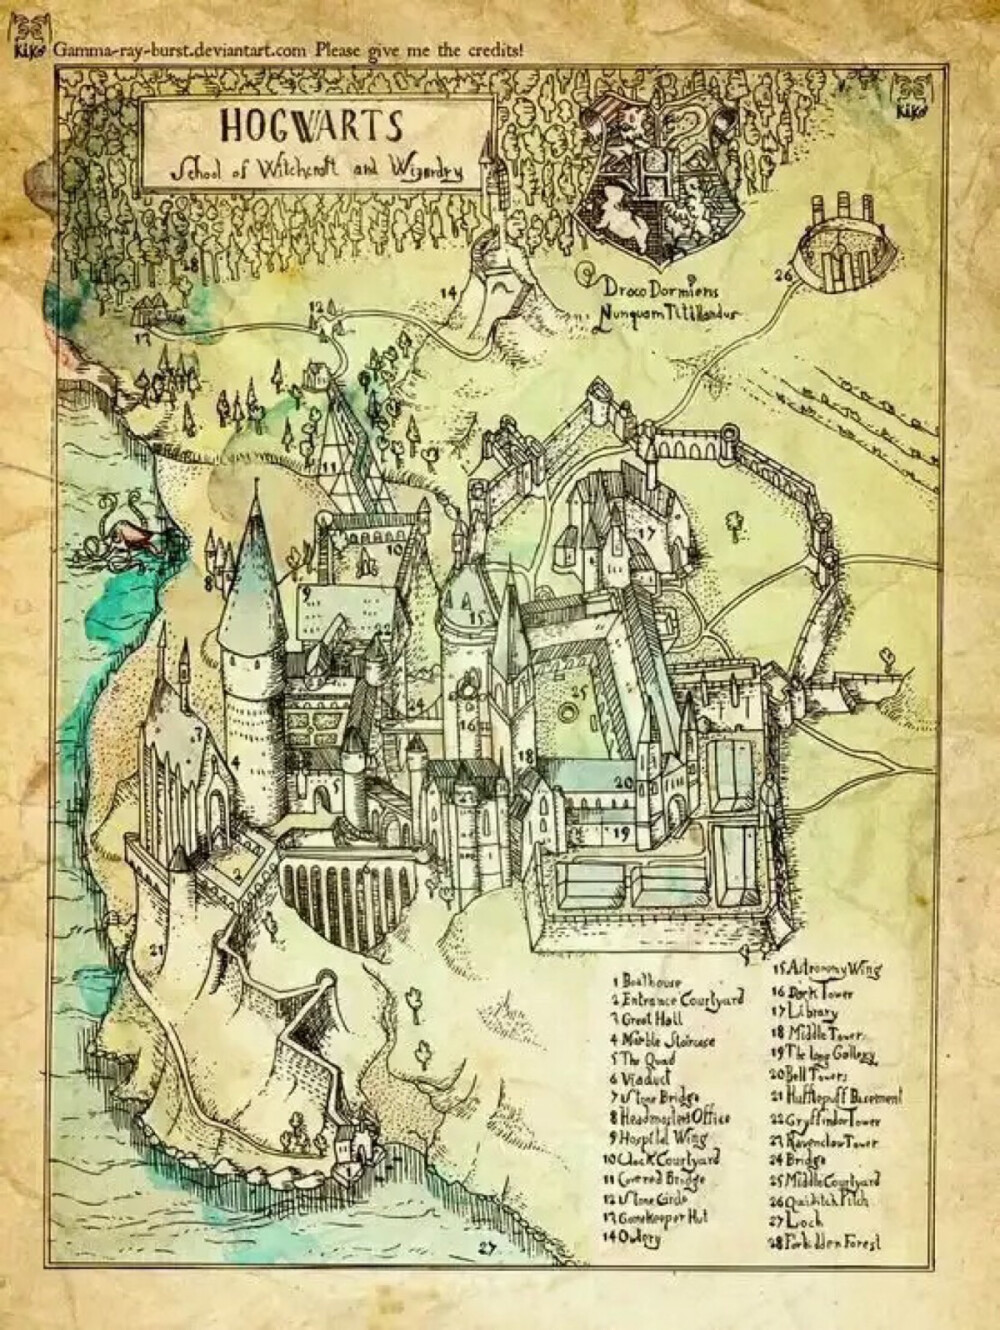 KiKo Gamma-ray-burst.deviantart.com Please give me the credits!
KiKo
HOGWARTS
School of Witchcraft and Wizardry
H
Draco Dormiens
Nunquam Titillandus
28
26
14
12
13
11
10
17
8
9
15
22
25
24
16
3
18
4
5
20
19
2
21
27
1 Boathouse
2 Entrance Courtyard
3 Great Hall
4 Marble Staircase
5 The Quad
6 Viaduct
7 Stone Bridge
8 Headmasters Office
9 Hospital Wing
10 Clock Courtyard
11 Covered Bridge
12 Stone Circle
13 Gamekeeper Hut
14 Owlery
15 Astronomy Wing
16 Dark Tower
17 Library
18 Middle Tower
19 The Long Gallery
20 Bell Towers
21 Hufflepuff Basement
22 Gryffindor Tower
23 Ravenclaw Tower
24 Bridge
25 Middle Courtyard
26 Quidditch Pitch
27 Loch
28 Forbidden Forest